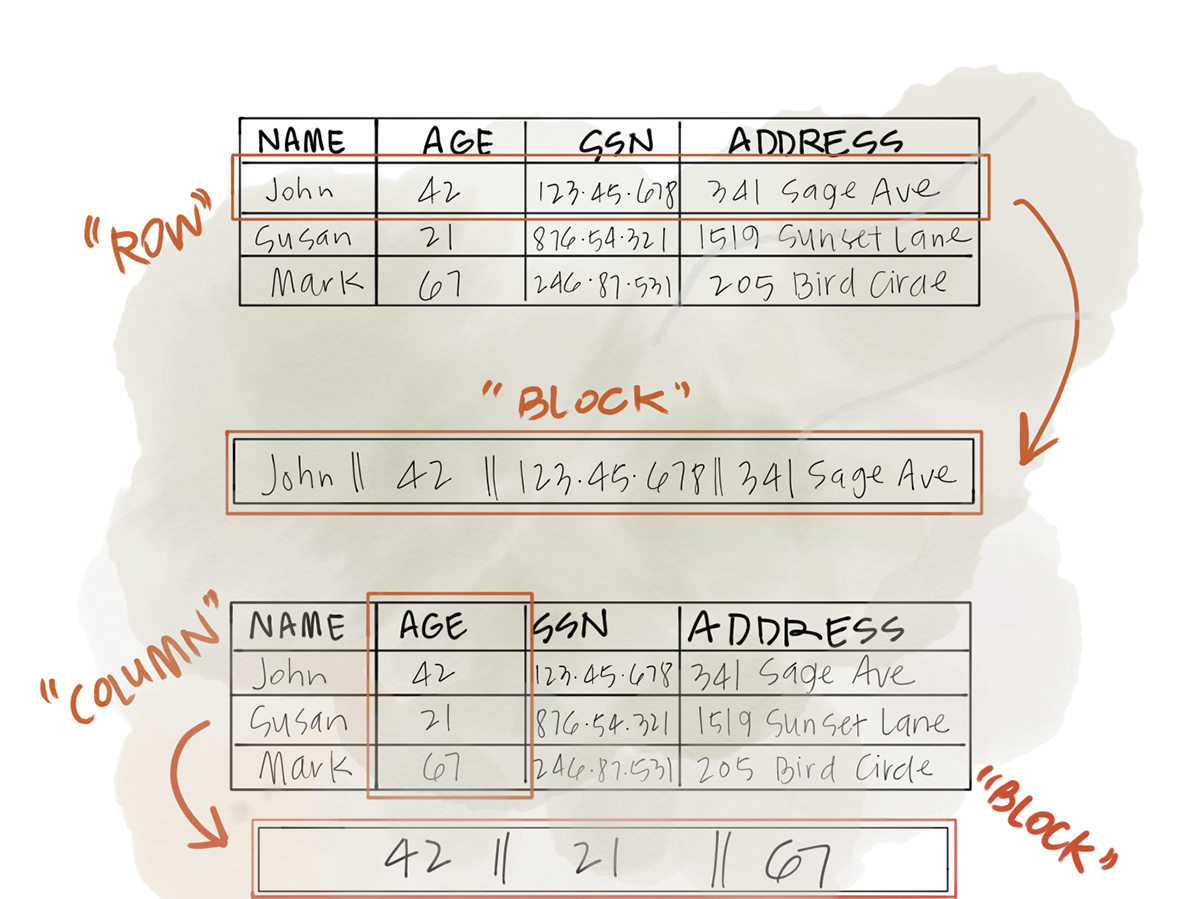 NAME AGE SSN ADDRESS
John 42 123.45.678 341 Sage Ave
"ROW"
Susan 21 876.54.321 1519 Sunset Lane
Mark 67 246.87.531 205 Bird Circle
"BLOCK"
John || 42 || 123.45.678 || 341 Sage Ave
NAME AGE SSN ADDRESS
"COLUMN"
John 42 123.45.678 341 Sage Ave
Susan 21 876.54.321 1519 Sunset Lane
Mark 67 246.87.531 205 Bird Circle
"BLOCK"
42 || 21 || 67